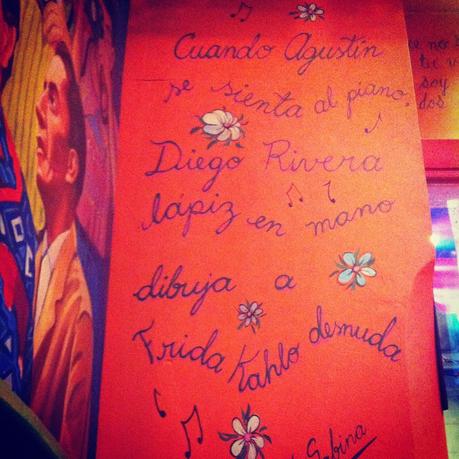 Cuando Agustín
se sienta al piano,
Diego Rivera
lápiz en mano
dibuja a
Frida Kahlo desnuda
Sabina
soy
dos